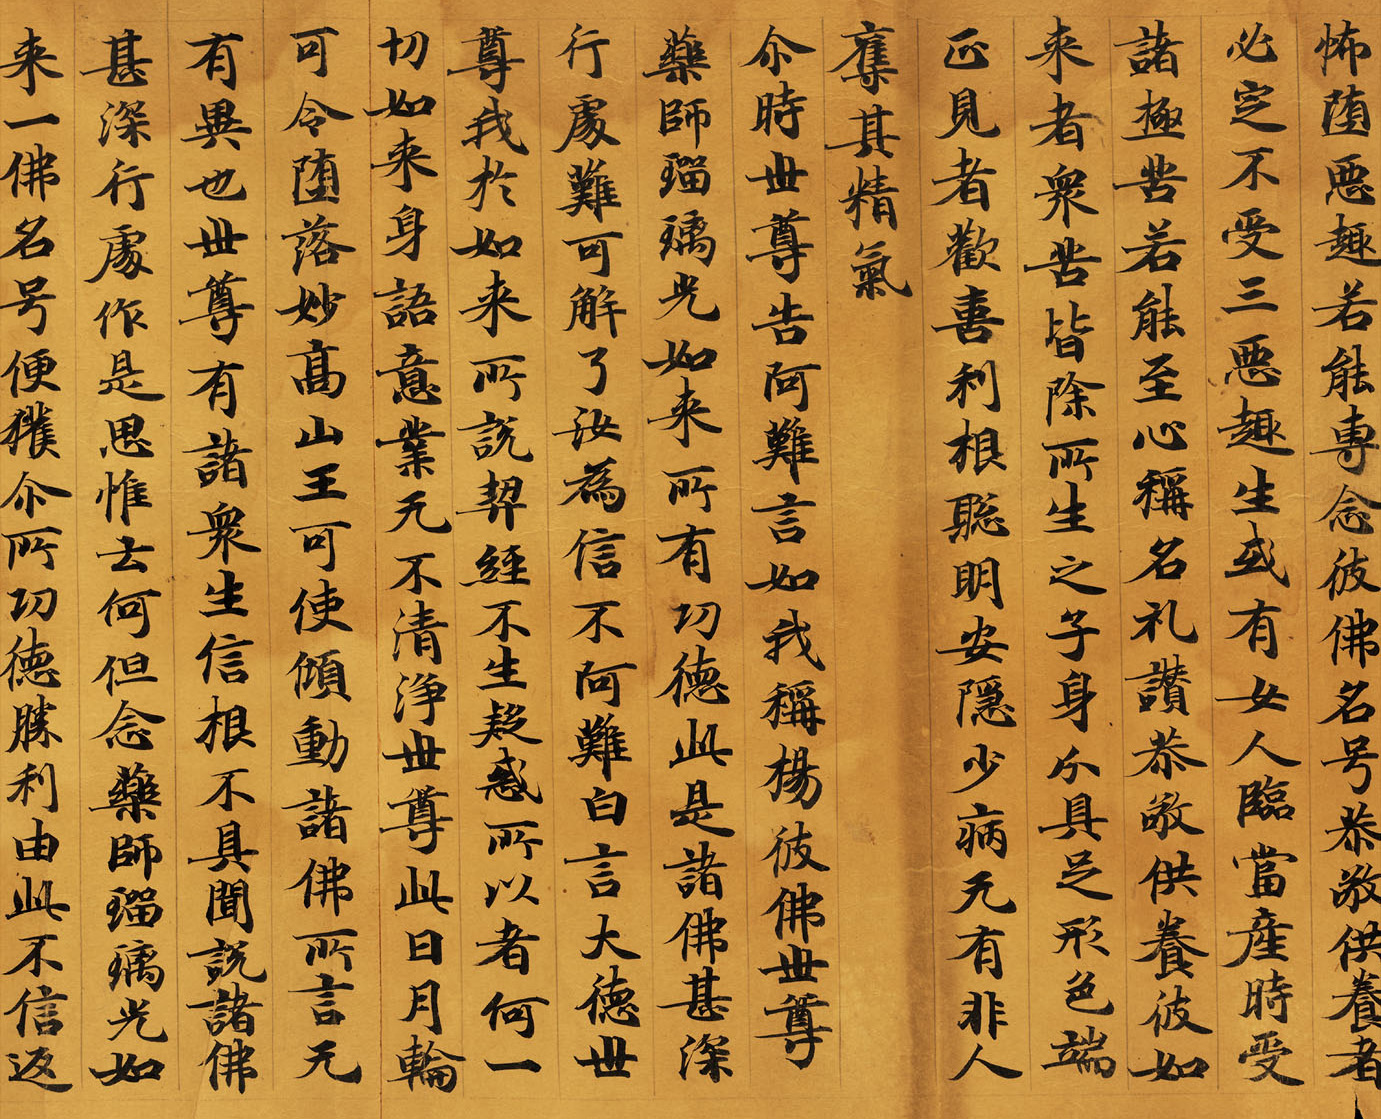 怖堕恶趣若能専念彼佛名号恭敬供養者
必定不受三恶趣生或有女人臨當產時受
諸極苦若能至心稱名礼讃恭敬供養彼如
来者衆苦皆除所生之子身分具足形色端
正見者歡喜利根聡明安隱少病无有非人
奪其精氣
尒時世尊告阿難言如我稱楊彼佛世尊
藥師瑠璃光如来所有功德此是諸佛甚深
行處難可解了汝為信不阿難白言大德世
尊我於如来所說契經不生疑惑所以者何一
切如来身語意業无不清淨世尊此日月輪
可令堕落妙髙山王可使傾動諸佛所言无
有異也世尊有諸衆生信根不具聞說諸佛
甚深行處作是思惟云何但念藥師瑠璃光如
来一佛名号便獲尒所功德勝利由此不信返